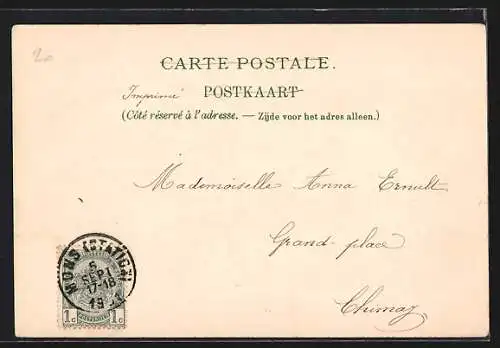 20
CARTE POSTALE.
Imprimé
POSTKAART
(Côté réservé à l'adresse. — Zijde voor het adres alleen.)
Mademoiselle Anna Ernult
Grand-place
Chimay
MONS (STATION)
5
SEPT
17-18
1c 1c